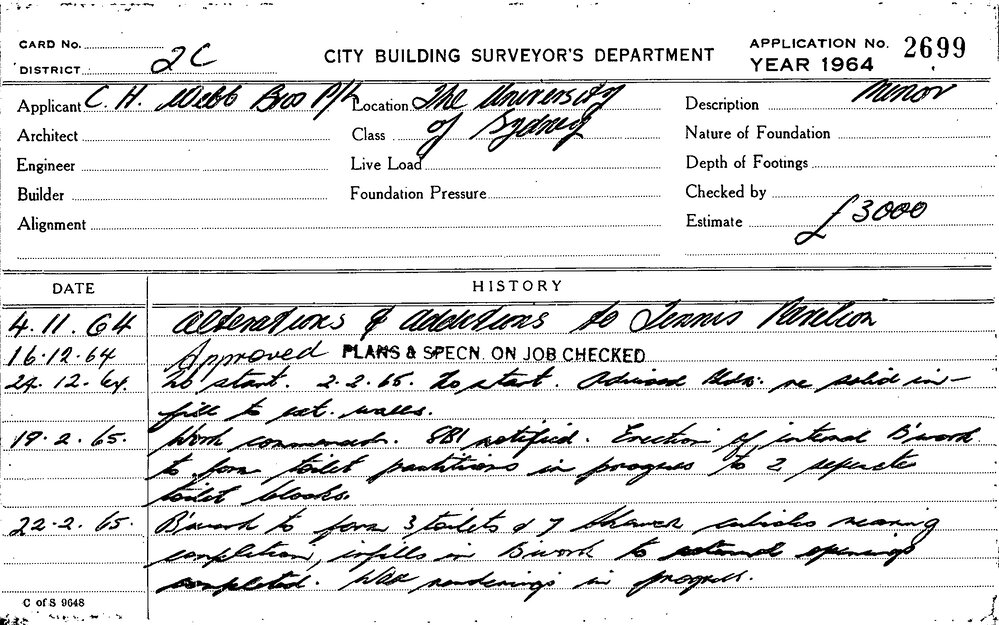 CARD No.
DISTRICT 2C
CITY BUILDING SURVEYOR'S DEPARTMENT
APPLICATION No. 2699
YEAR 1964
Applicant C. H. Webb Bros P/L Location The University
of Sydney
Description Minor
Architect
Class
Nature of Foundation
Engineer
Live Load
Depth of Footings
Builder
Foundation Pressure
Checked by
Alignment
Estimate £3000
DATE HISTORY
4.11.64 Alterations & additions to Tennis Pavilion
16.12.64 Approved PLANS & SPECN. ON JOB CHECKED
24.12.64 No start. 2.2.65. No start. Advised Bldr. re solid in-
fill to ext. walls.
19.2.65. Work commenced. SBI notified. Erection of internal B'work
to form toilet partitions in progress to 2 seperate
toilet blocks.
22.2.65. B'work to form 3 toilets & 7 shower cubicles nearing
completion, infills in B'work to external openings
completed. Wall renderings in progress.
C of S 9648